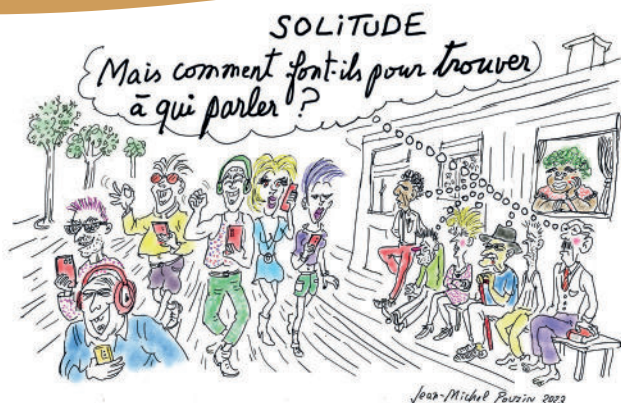 SOLITUDE
Mais comment font-ils pour trouver
à qui parler ?
Jean-Michel Pouzin 2022